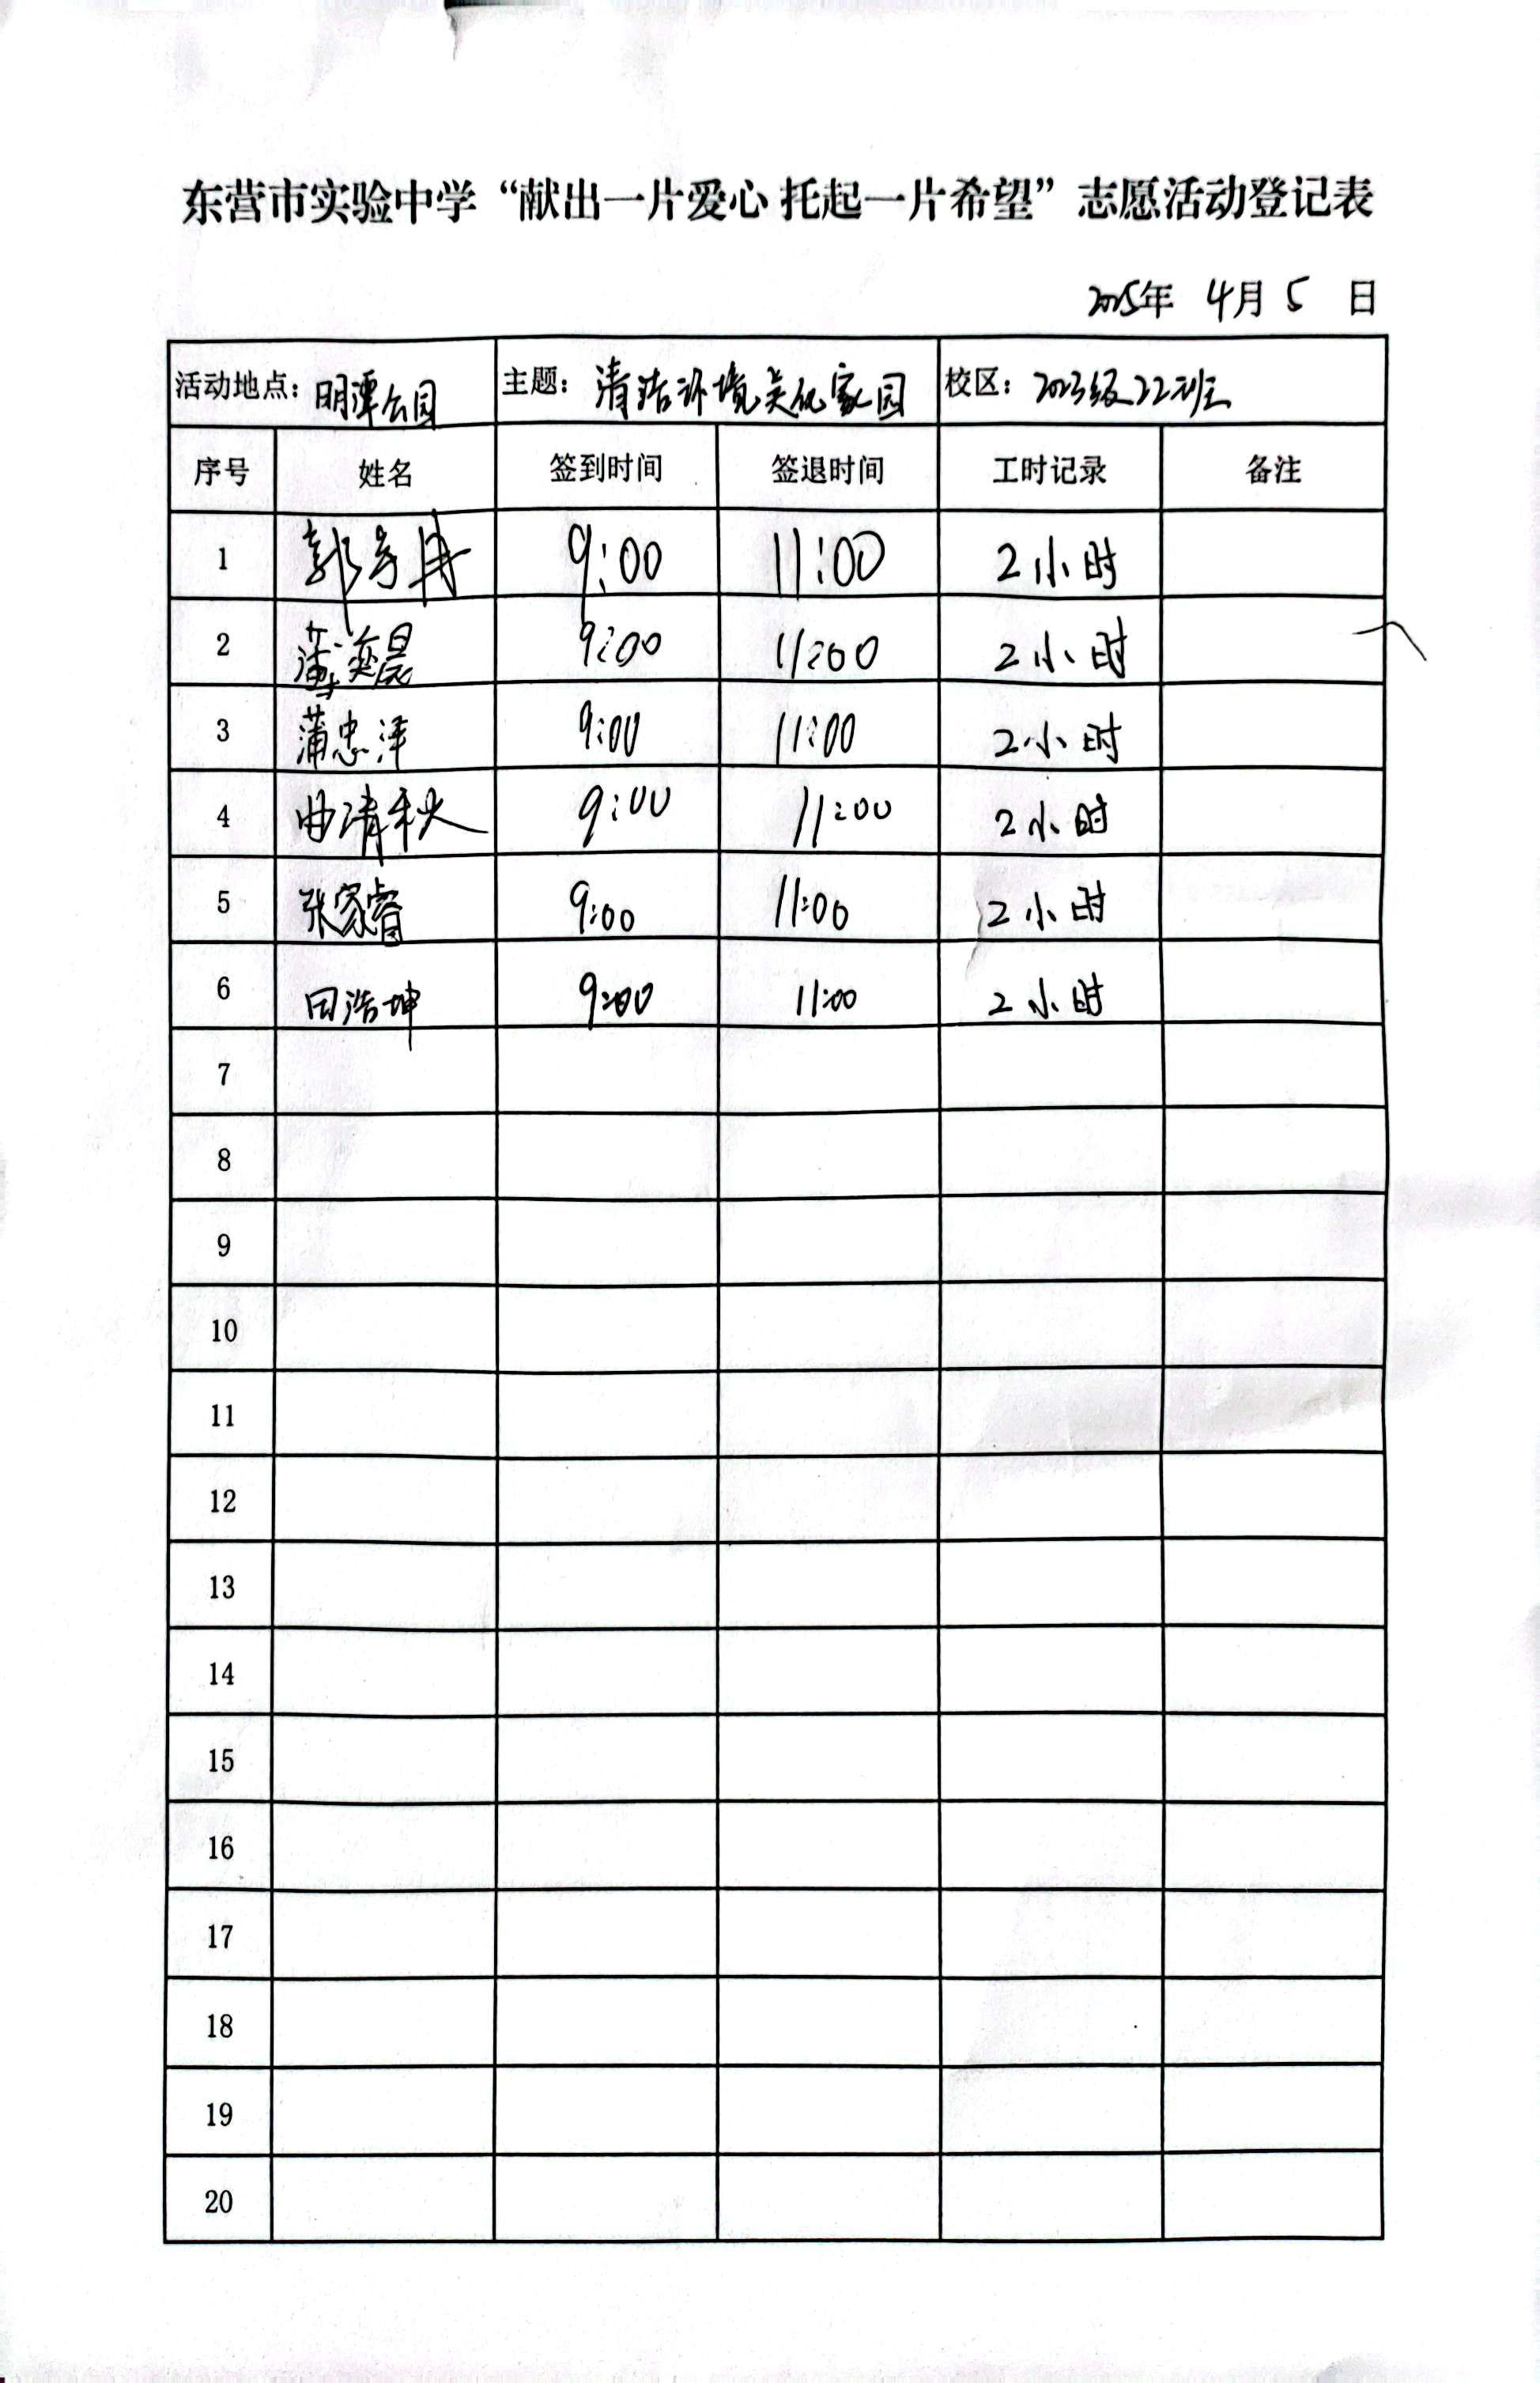 东营市实验中学“献出一片爱心 托起一片希望”志愿活动登记表
2025年 4月 5 日
活动地点：明潭公园 主题：清洁环境美化家园 校区：2023级22班
序号 姓名 签到时间 签退时间 工时记录 备注
1 郭 9:00 11:00 2小时
2 蒲奕晨 9:00 11:00 2小时
3 蒲忠洋 9:00 11:00 2小时
4 曲清秋 9:00 11:00 2小时
5 张家睿 9:00 11:00 2小时
6 田浩坤 9:00 11:00 2小时
7
8
9
10
11
12
13
14
15
16
17
18
19
20